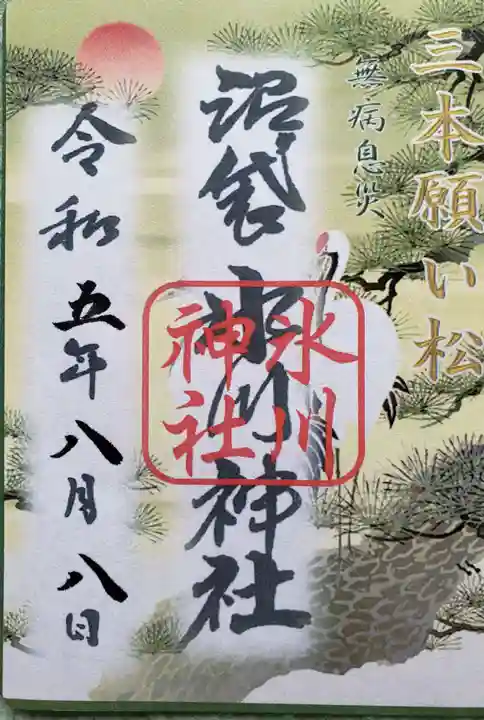 三本願い松
無病息災
沼袋氷川神社
氷川
神社
令和五年八月八日